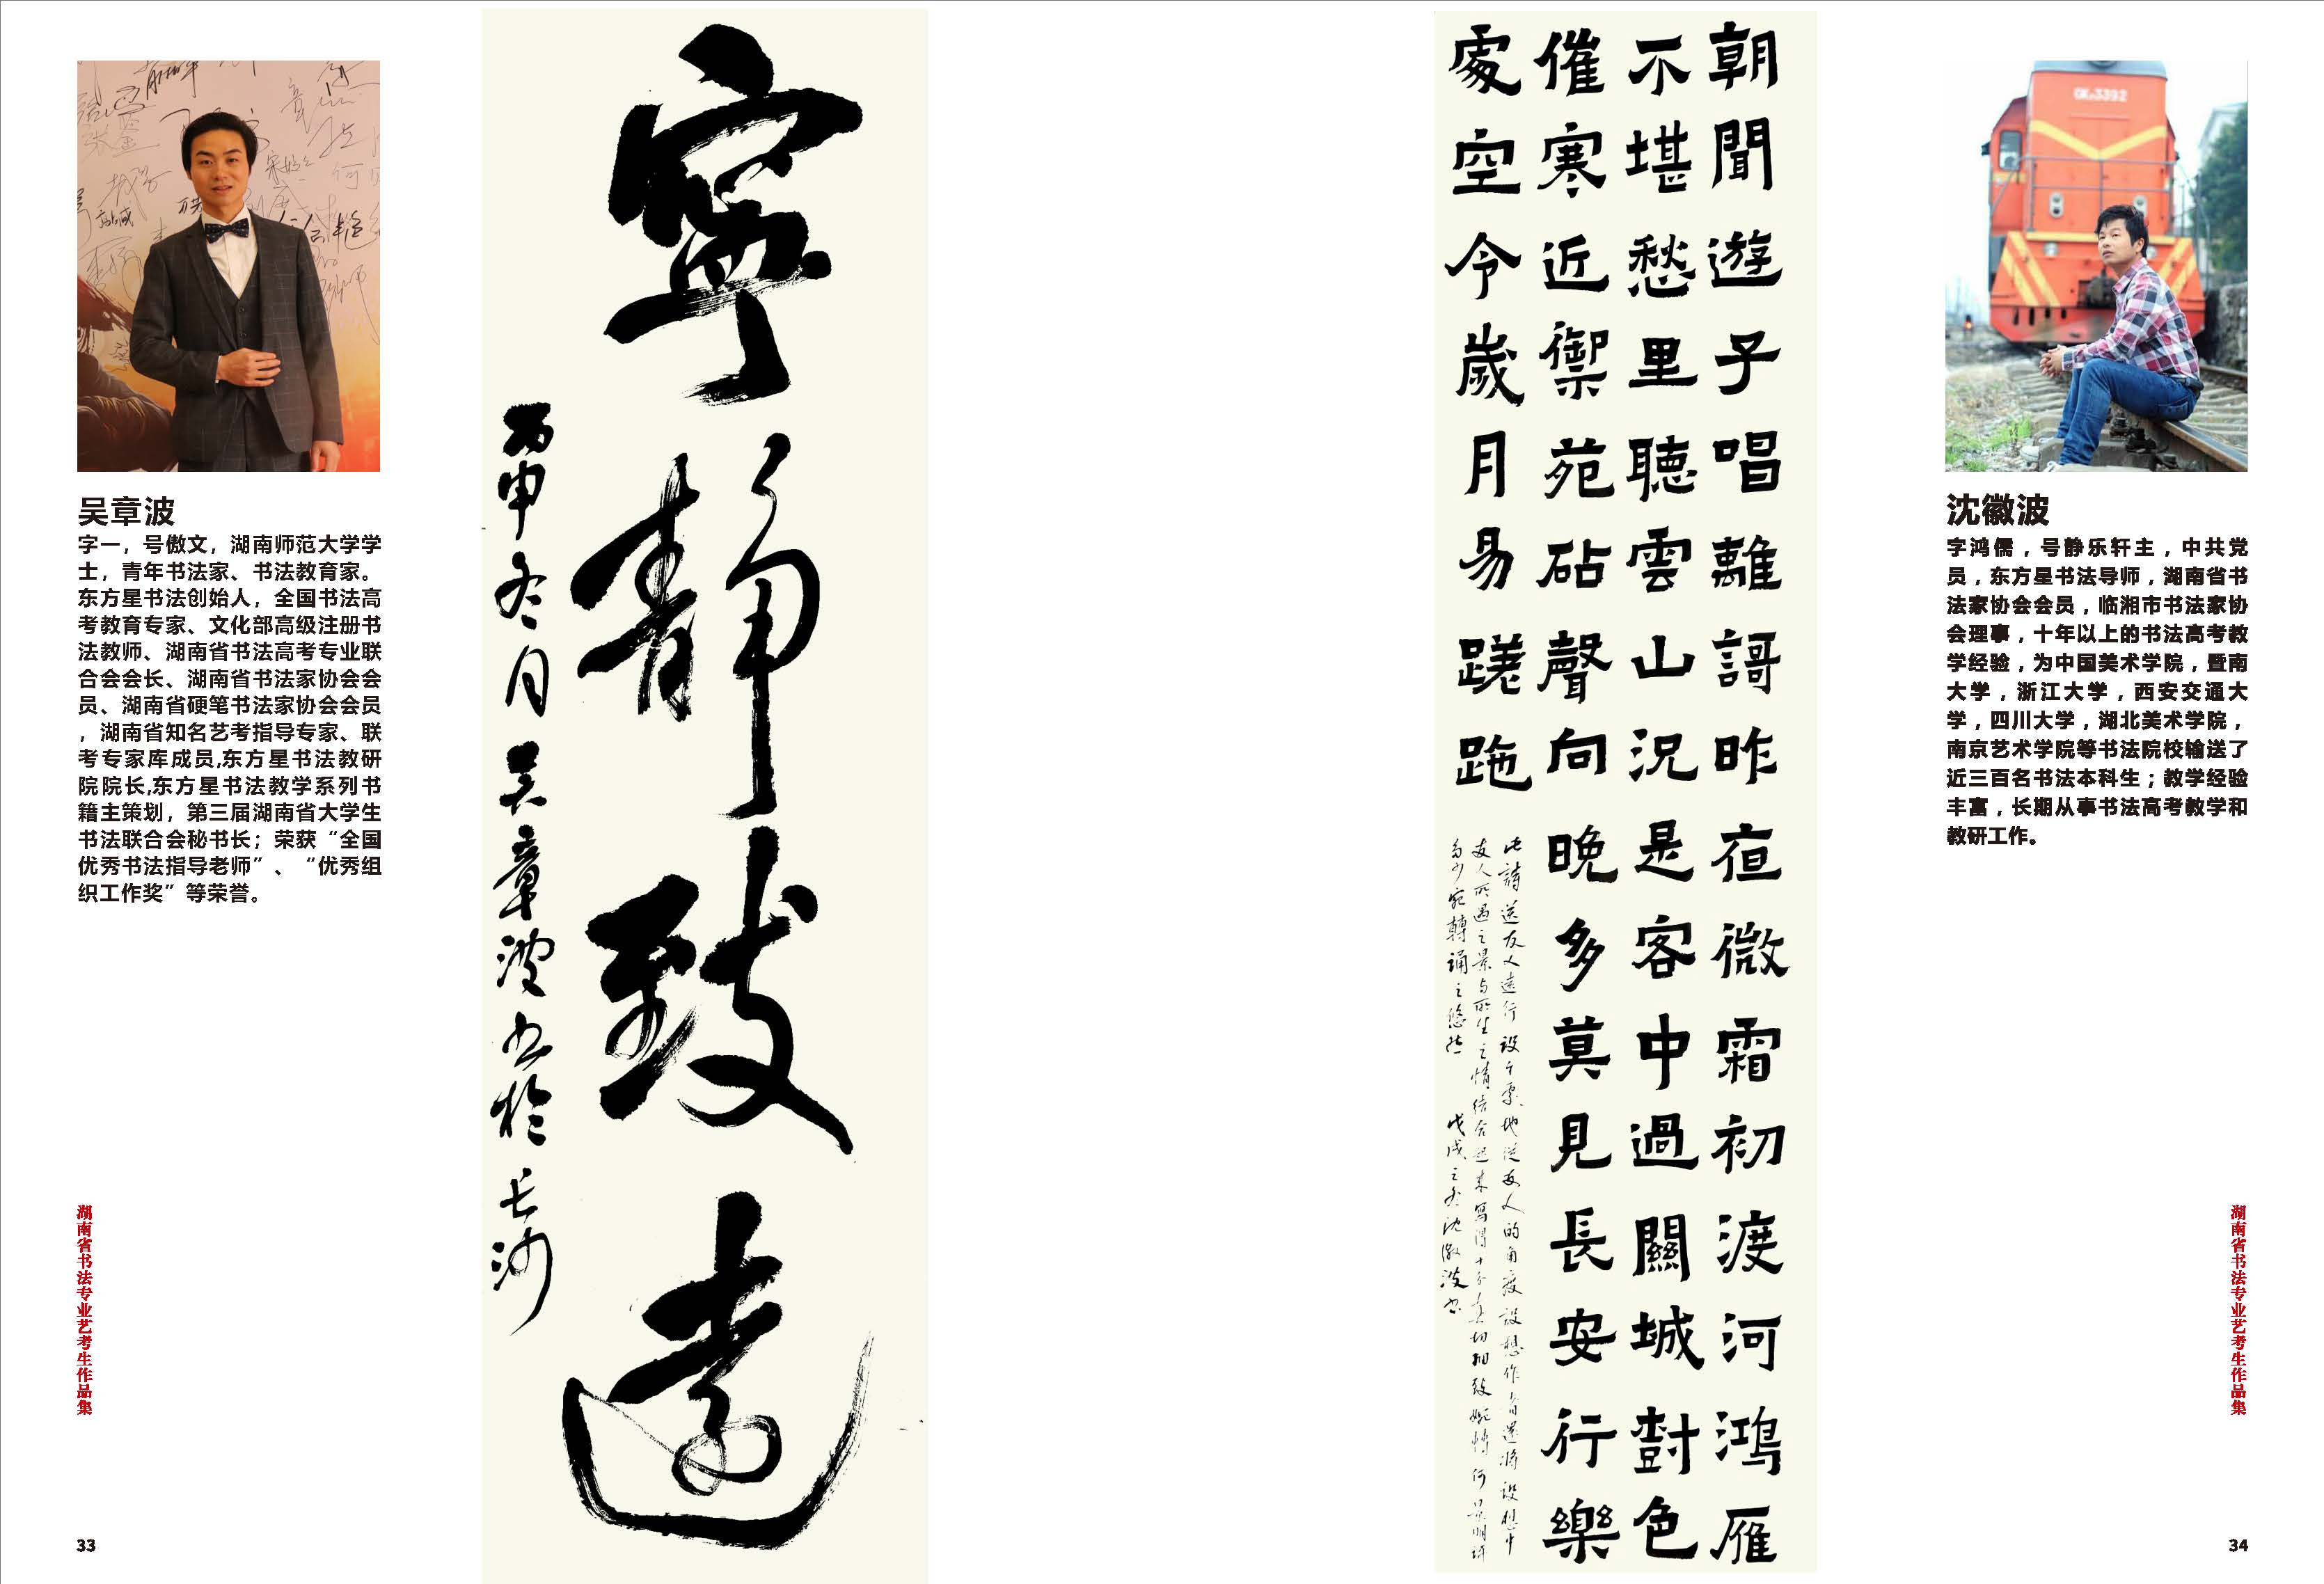 吴章波
字一，号傲文，湖南师范大学学
士，青年书法家、书法教育家。
东方星书法创始人，全国书法高
考教育专家、文化部高级注册书
法教师、湖南省书法高考专业联
合会会长、湖南省书法家协会会
员、湖南省硬笔书法家协会会员
，湖南省知名艺考指导专家、联
考专家库成员,东方星书法教研
院院长,东方星书法教学系列书
籍主策划，第三届湖南省大学生
书法联合会秘书长；荣获“全国
优秀书法指导老师”、“优秀组
织工作奖”等荣誉。
湖南省书法专业艺考生作品集
33
寧靜致遠
丙申冬月吴章波书於长沙
朝聞遊子唱離謌昨宿微霜初渡河鴻雁
不堪愁里聽雲山況是客中過關城樹色
催寒近禦苑砧聲向晚多莫見長安行樂
處空令歲月易蹉跎
戊戌之冬沈徽波书
沈徽波
字鸿儒，号静乐轩主，中共党
员，东方星书法导师，湖南省书
法家协会会员，临湘市书法家协
会理事，十年以上的书法高考教
学经验，为中国美术学院，暨南
大学，浙江大学，西安交通大
学，四川大学，湖北美术学院，
南京艺术学院等书法院校输送了
近三百名书法本科生；教学经验
丰富，长期从事书法高考教学和
教研工作。
湖南省书法专业艺考生作品集
34